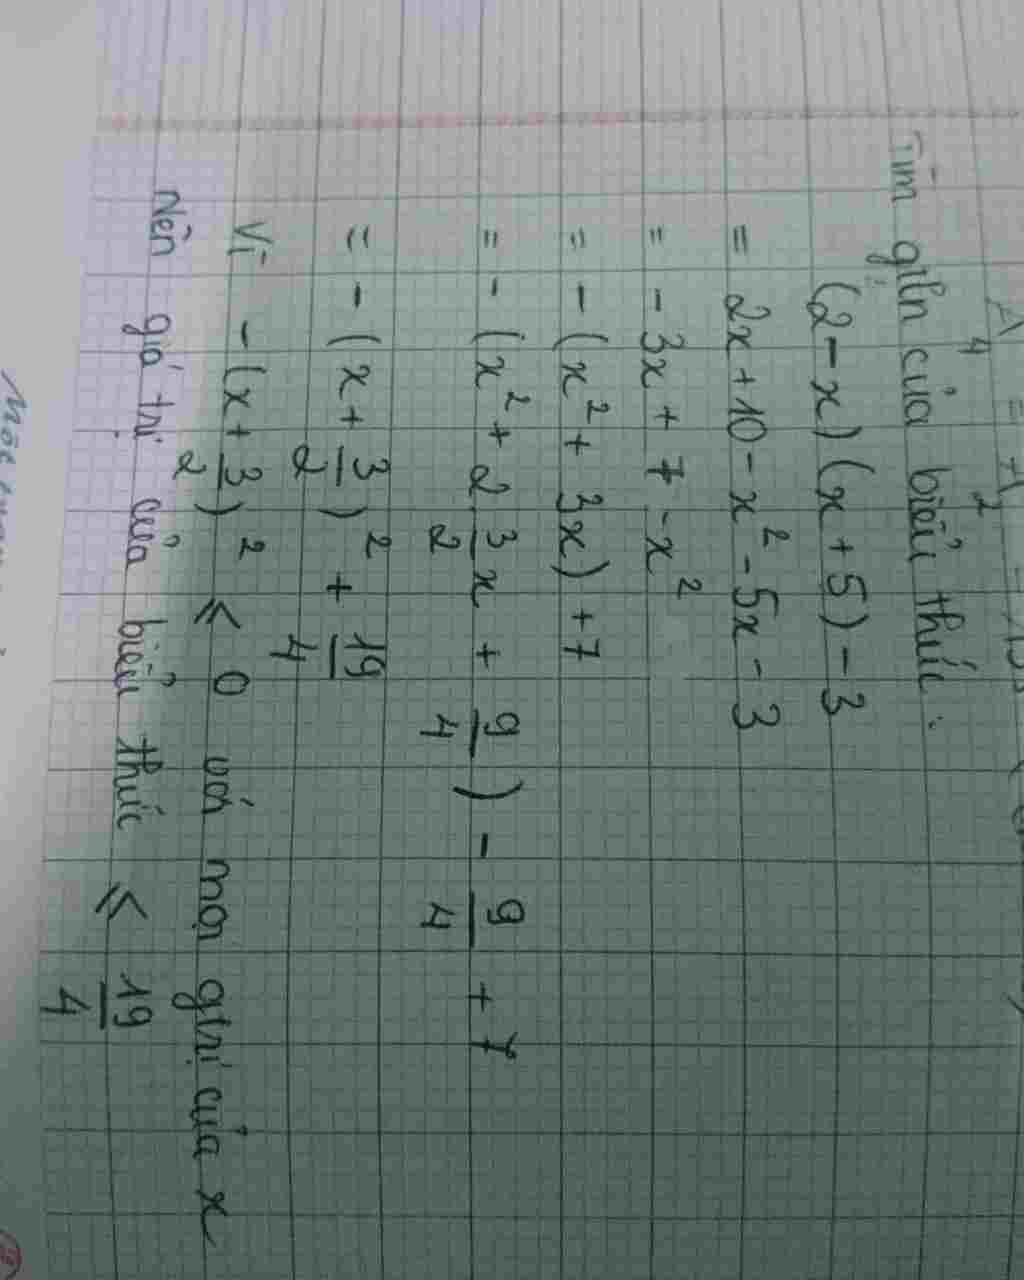 A⁴ = A² -
Tìm gtln của biểu thức:
(2-x)(x+5)-3
= 2x+10-x²-5x-3
= -3x+7-x²
= -(x²+3x)+7
= -(x²+2.3/2x+9/4)-9/4+7
= -(x+3/2)²+19/4
Vì -(x+3/2)² ≤ 0 với mọi gtrị của x
Nên giá trị của biểu thức ≤ 19/4